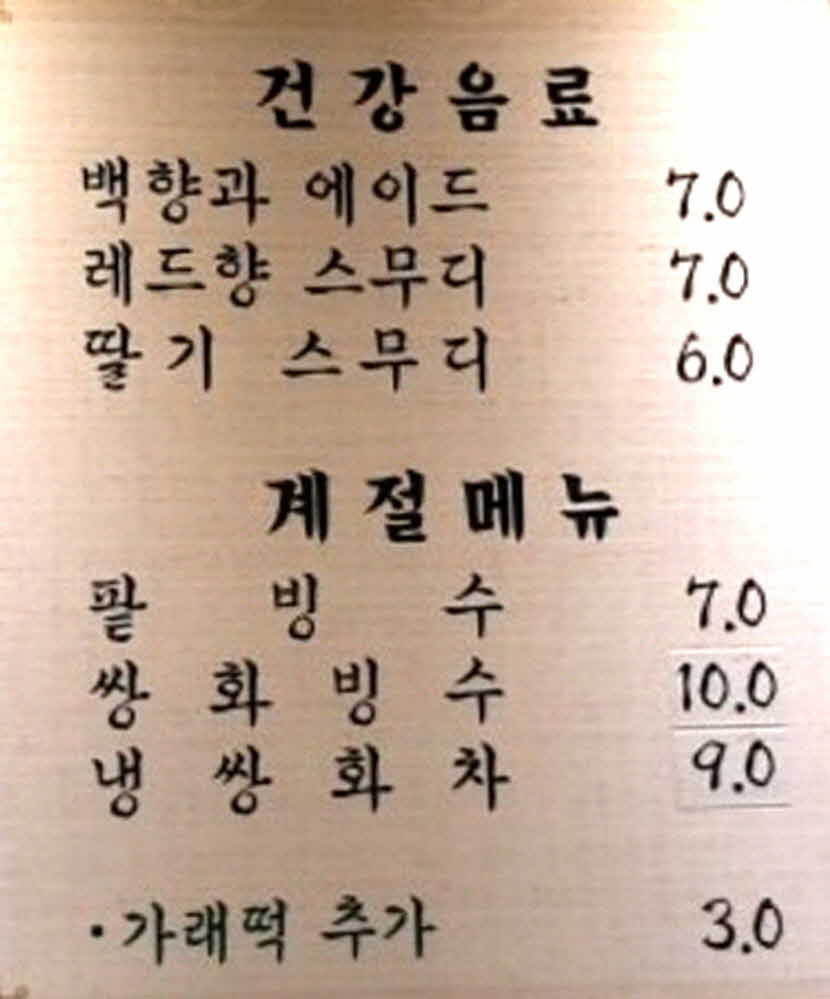 건강음료
백향과 에이드 7.0
레드향 스무디 7.0
딸기 스무디 6.0
계절메뉴
팥빙수 7.0
쌍화빙수 10.0
냉쌍화차 9.0
·가래떡 추가 3.0